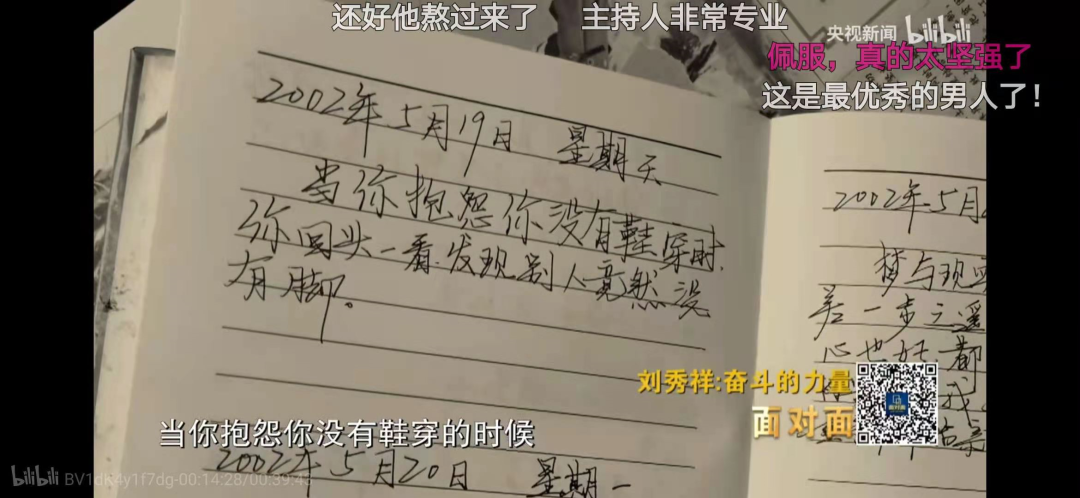 还好他熬过来了 主持人非常专业
央视新闻 bilibili
佩服，真的太坚强了
这是最优秀的男人了！
2002年5月19日 星期天
当你抱怨你没有鞋穿时,
你回头一看.发现别人竟然没
有脚。
2002年5月20日 星期一
2002年5月
梦与现实
差一步之遥
心也好 都
我
刘秀祥:奋斗的力量
面对面
当你抱怨你没有鞋穿的时候
bilibili BV1dK4y1f7dg-00:14:28/00:39:43